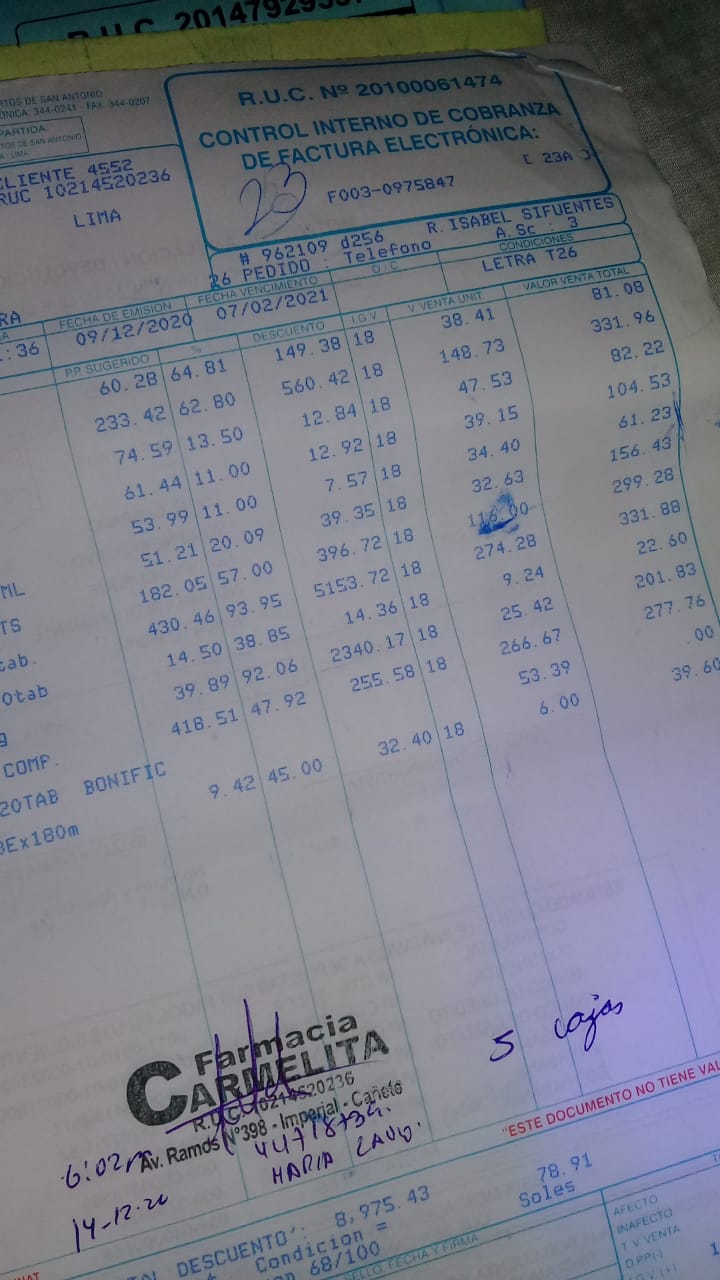 R.U.C. 2014792
RTOS DE SAN ANTONIO
ONICA: 344-0241 - FAX. 344-0207
PARTIDA
TOS DE SAN ANTONIO
- LIMA
CLIENTE 4552
RUC 10214520236
LIMA
R.U.C. Nº 20100061474
CONTROL INTERNO DE COBRANZA
DE FACTURA ELECTRÓNICA:
[ 23A ]
23 F003-0975847
# 962109 d256 R. ISABEL SIFUENTES
26 PEDIDO : Telefono A.Sc : 3
RA FECHA DE EMISIÓN FECHA VENCIMIENTO O / C CONDICIONES
:36 09/12/2020 07/02/2021 LETRA T26
P.P. SUGERIDO % DESCUENTO I G V V. VENTA UNIT. VALOR VENTA TOTAL
60.28 64.81 149.38 18 38.41 81.08
233.42 62.80 560.42 18 148.73 331.96
74.59 13.50 12.84 18 47.53 82.22
61.44 11.00 12.92 18 39.15 104.53
53.99 11.00 7.57 18 34.40 61.23
51.21 20.09 39.35 18 32.63 156.43
ML 182.05 57.00 396.72 18 116.00 299.28
TS 430.46 93.95 5153.72 18 274.28 331.88
tab. 14.50 38.85 14.36 18 9.24 22.60
0tab 39.89 92.06 2340.17 18 25.42 201.83
g 418.51 47.92 255.58 18 266.67 277.76
COMP. 53.39 .00
20TAB BONIFIC 9.42 45.00 32.40 18 6.00 39.60
BEx180m
5 cajas
Farmacia
CARMELITA
R.U.C. 10214520236
Av. Ramos Nº398 - Imperial - Cañete
6:02
MARIA
14-12-20
"ESTE DOCUMENTO NO TIENE VAL
DESCUENTO': 8,975.43 78.91
Condicion = Soles
68/100
SELLO, FECHA Y FIRMA
AFECTO
INAFECTO
T. V VENTA
D.PP(-)